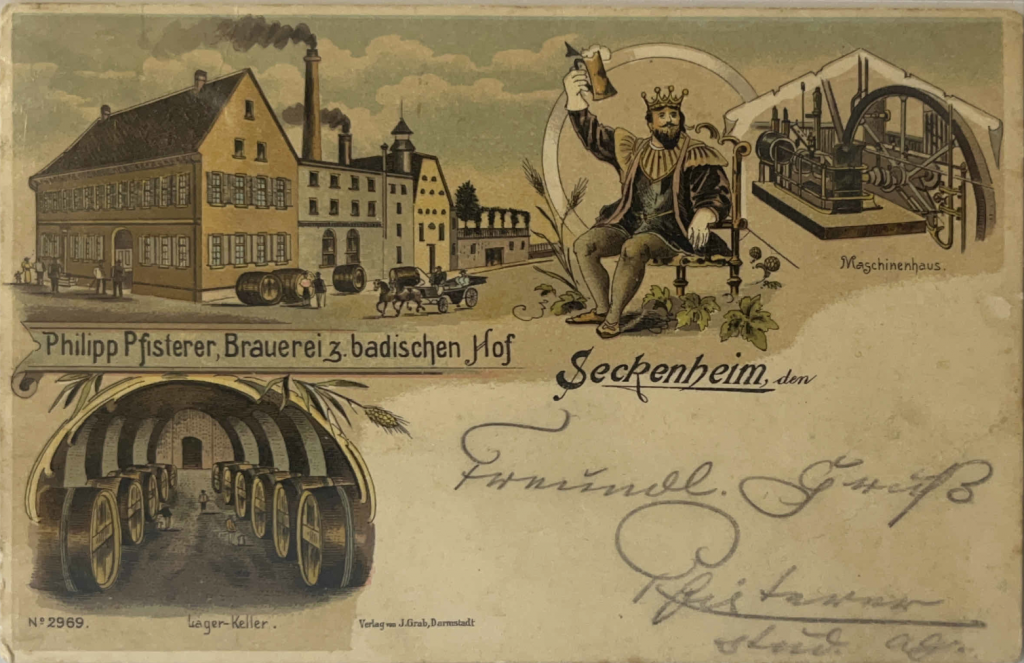 Maschinenhaus.
Philipp Pfisterer, Brauerei z. badischen Hof
Seckenheim, den
Freundl. Gruß
Pfisterer
stud. agr.
Nº 2969.
Lager-Keller.
Verlag von J. Grab, Darmstadt